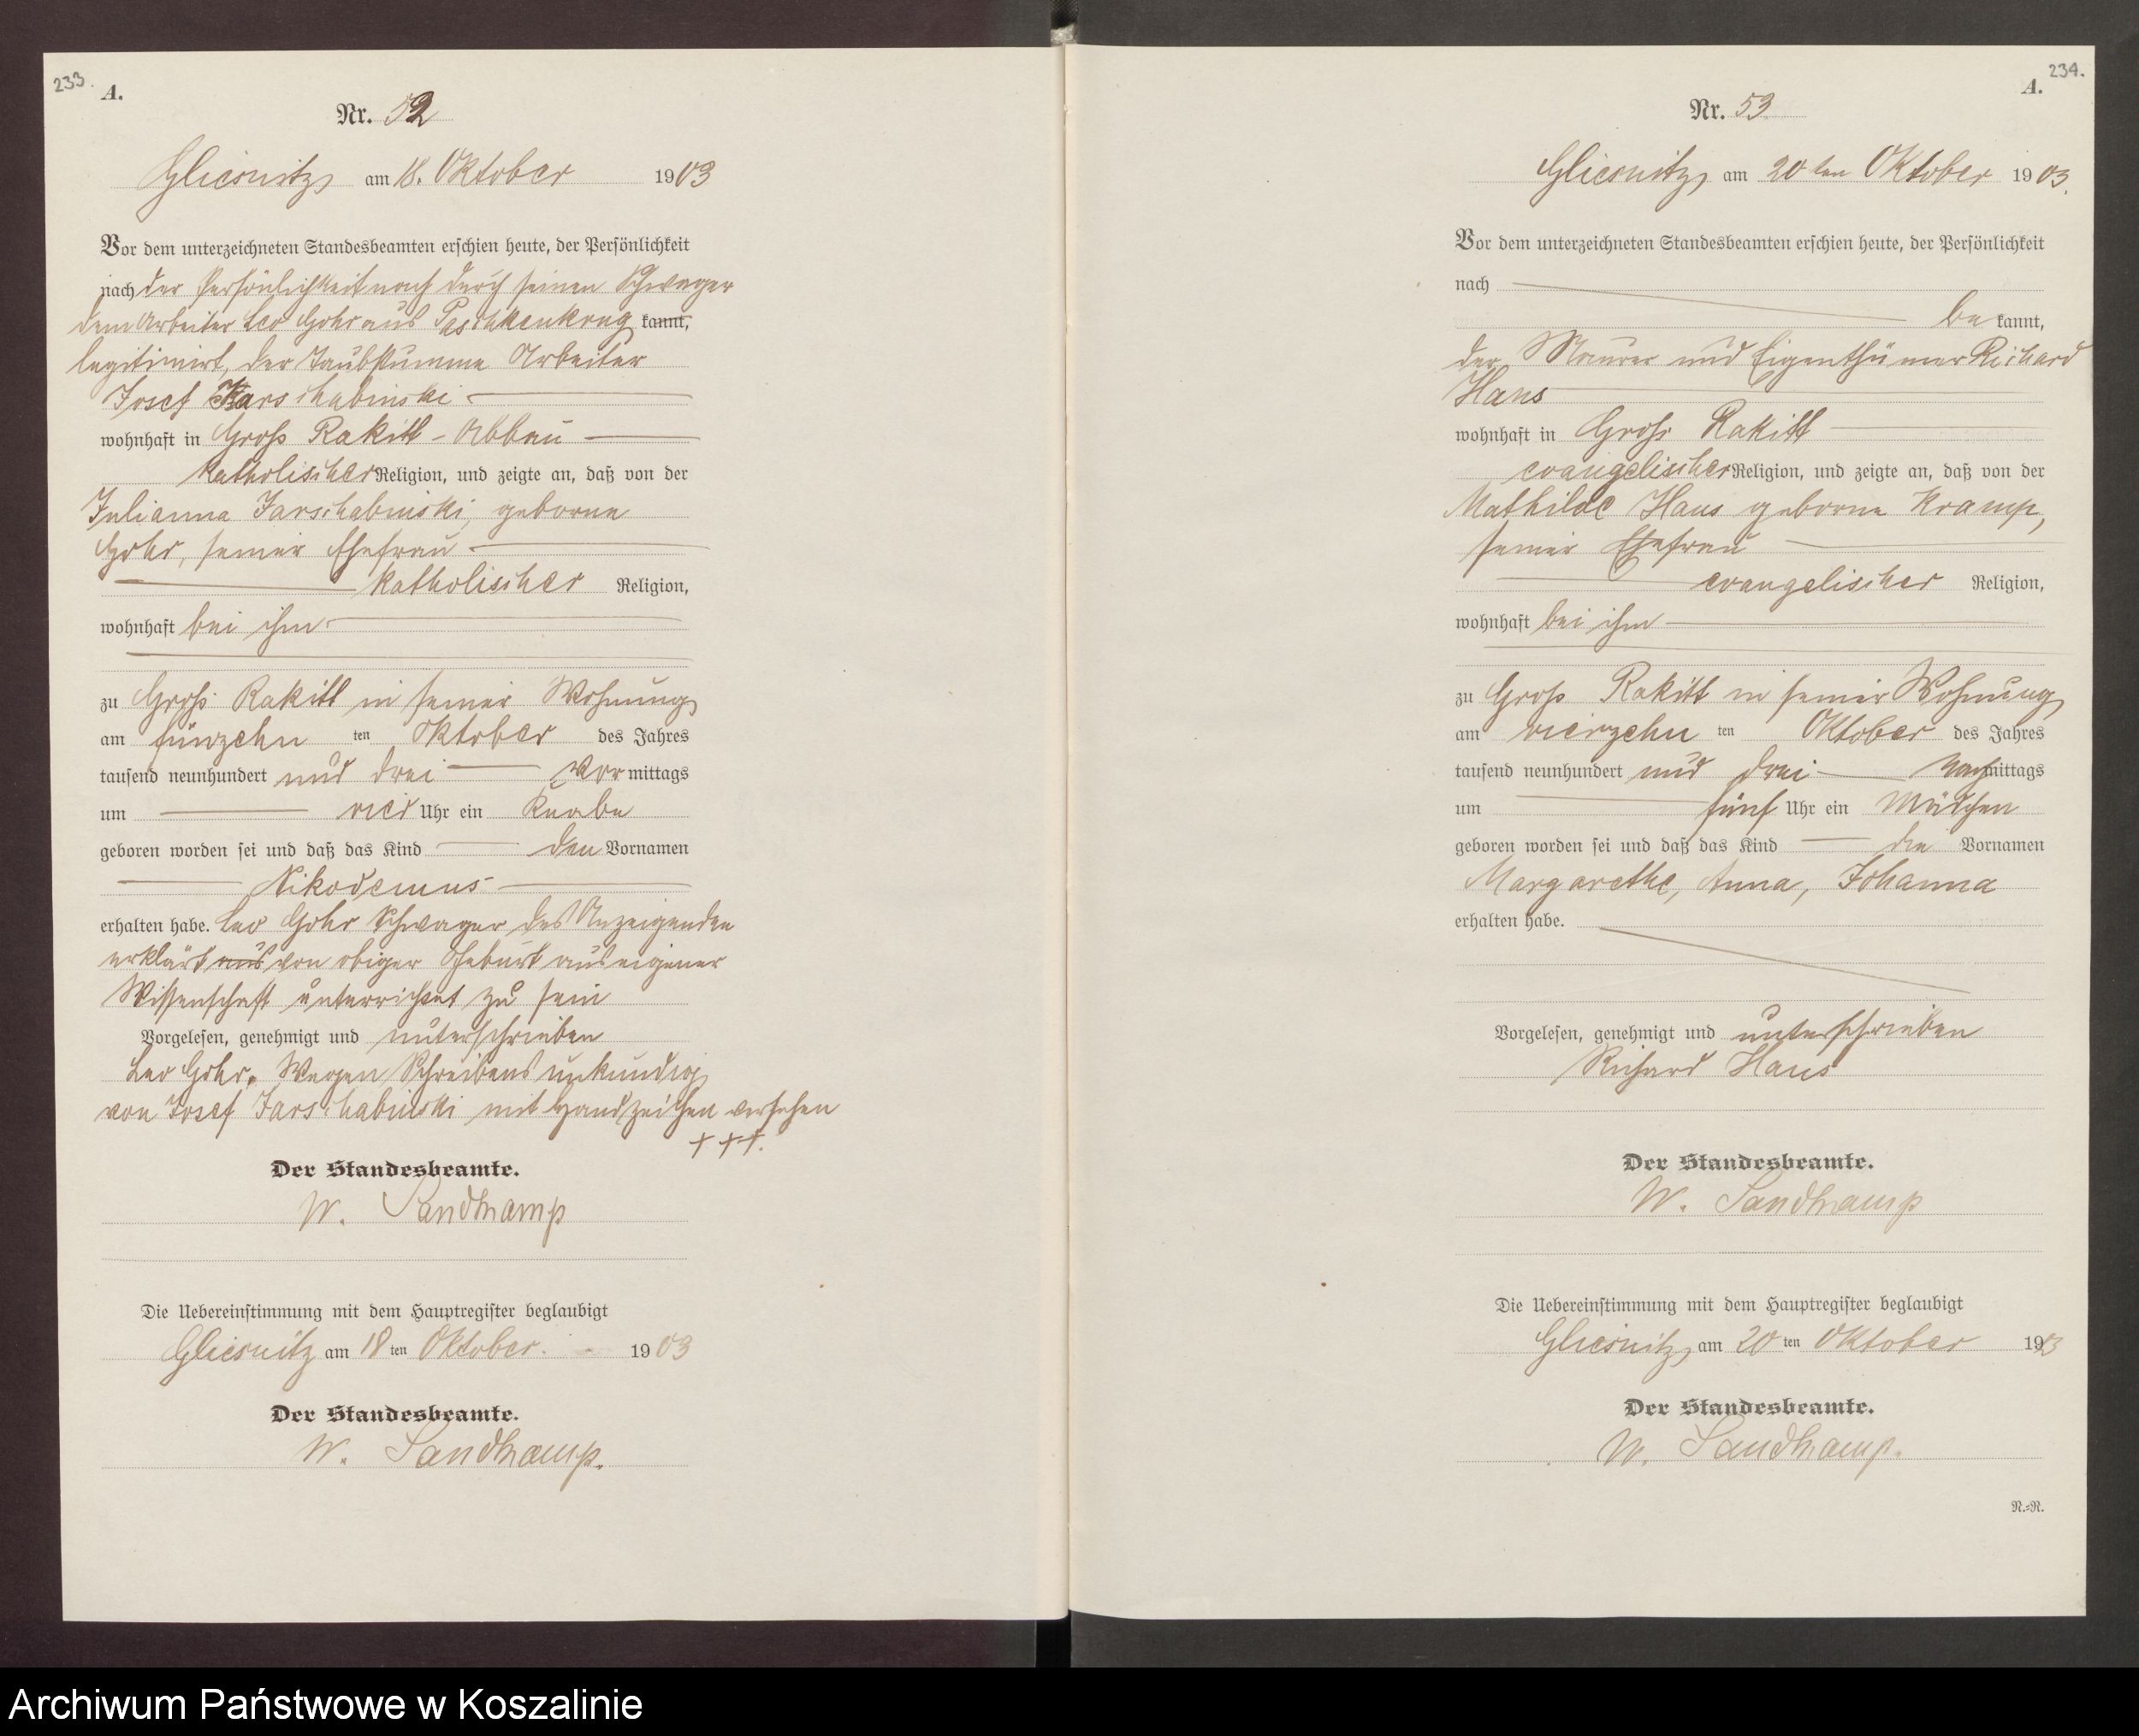 233.
A.
Nr. 52
Gliesnitz am 18. Oktober 1903
Vor dem unterzeichneten Standesbeamten erschien heute, der Persönlichkeit
nach der Persönlichkeit nach durch seinen Schwager
dem Arbeiter Leo Gohr aus Paschkenkrug kannt,
legitimirt, der Taubstumme Arbeiter
Josef Jarschabinski
wohnhaft in Groß Rakitt - Abbau
katholischer Religion, und zeigte an, daß von der
Julianna Jarschabinski, geborne
Gohr, seiner Ehefrau
katholischer Religion,
wohnhaft bei ihm
zu Groß Rakitt in seiner Wohnung
am fünzehn ten Oktober des Jahres
tausend neunhundert und drei Vor mittags
um vier Uhr ein Knabe
geboren worden sei und daß das Kind den Vornamen
Nikodemus
erhalten habe. Leo Gohr Schwager des Anzeigenden
erklärt aus von obiger Geburt aus eigener
Wissenschaft unterrichtet zu sein
Vorgelesen, genehmigt und unterschrieben
Leo Gohr. Wegen Schreibens unkundig
von Josef Jarschabinski mit Handzeichen versehen
+++.
Der Standesbeamte.
W. Sandkamp
Die Uebereinstimmung mit dem Hauptregister beglaubigt
Gliesnitz am 18 ten Oktober. 1903
Der Standesbeamte.
W. Sandkamp.
234.
A.
Nr. 53
Gliesnitz am 20ten Oktober 1903.
Vor dem unterzeichneten Standesbeamten erschien heute, der Persönlichkeit
nach
be kannt,
der Maurer und Eigenthümer Richard
Haus
wohnhaft in Groß Rakitt
evangelischer Religion, und zeigte an, daß von der
Mathilde Haus geborne Kramp,
seiner Ehefrau
evangelischer Religion,
wohnhaft bei ihm
zu Groß Rakitt in seiner Wohnung
am vierzehn ten Oktober des Jahres
tausend neunhundert und drei Nach mittags
um fünf Uhr ein Mädchen
geboren worden sei und daß das Kind die Vornamen
Margarethe, Anna, Johanna
erhalten habe.
Vorgelesen, genehmigt und unterschrieben
Richard Haus
Der Standesbeamte.
W. Sandkamp
Die Uebereinstimmung mit dem Hauptregister beglaubigt
Gliesnitz am 20 ten Oktober 1903
Der Standesbeamte.
W. Sandkamp.
N.=N.
Archiwum Państwowe w Koszalinie